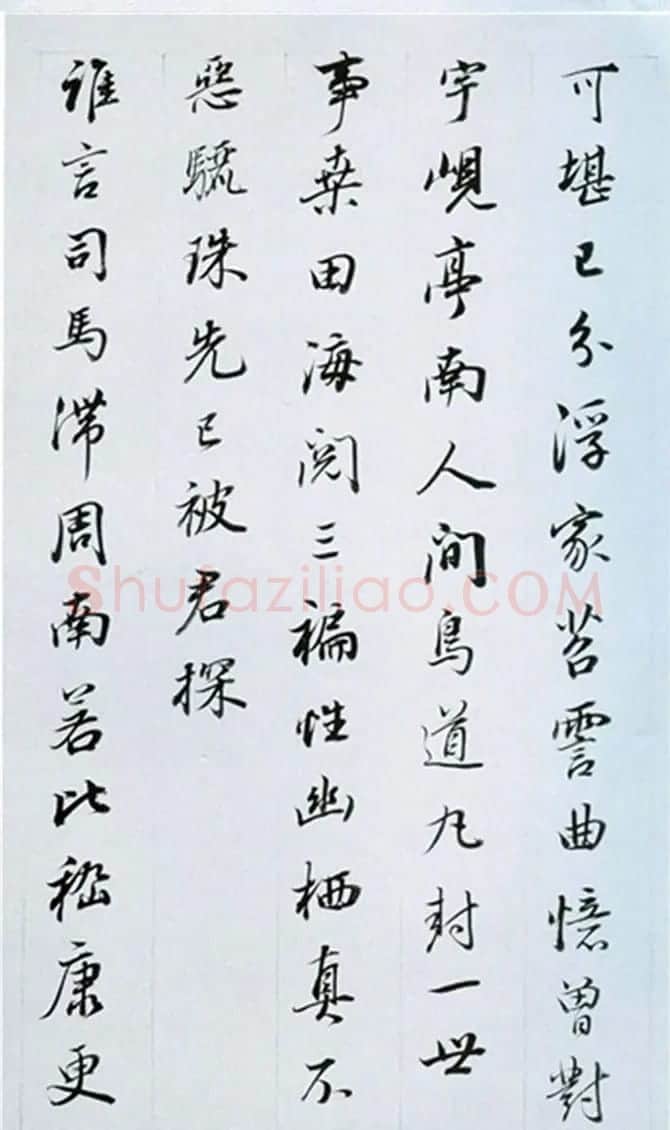 可堪已分浮家苕霅曲憶曾對
宇峴亭南人間鳥道丸封一世
事桑田海閱三褊性幽栖真不
惡驪珠先已被君探
誰言司馬滯周南若比嵇康更
Shufaziliao.COM